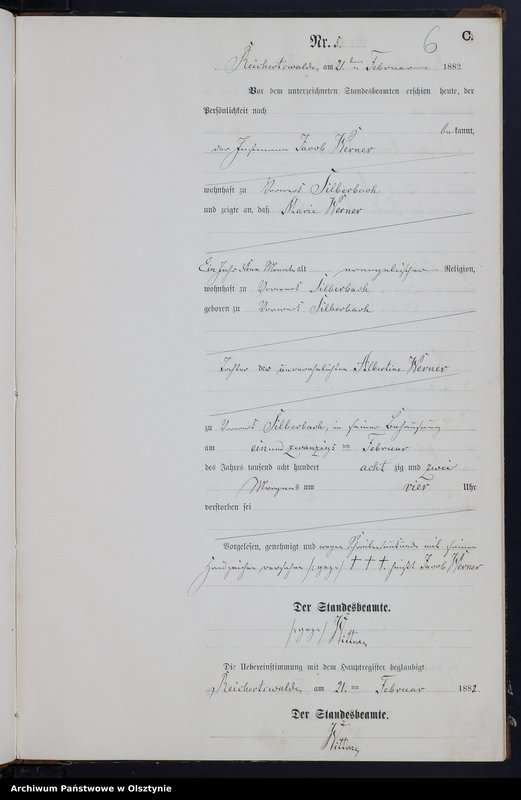 C.
6
Nr. 5.
Reichertswalde, am 21. ten Februar 1882.
Vor dem unterzeichneten Standesbeamten erschien heute, der
Persönlichkeit nach
bekannt,
der Instmann Jacob Werner
wohnhaft zu Vorwerk Silberbach
und zeigte an, daß Marie Werner
Ein Jahr Monate alt evangelischer Religion,
wohnhaft zu Vorwerk Silberbach
geboren zu Vorwerk Silberbach
Tochter der unverehelichten Albertine Werner
zu Vorwerk Silberbach, in seiner Behausung
am einundzwanzigsten Februar
des Jahres tausend acht hundert achtzig und zwei
Morgens um vier Uhr
verstorben sei
Vorgelesen, genehmigt und wegen Schreibensunkunde mit seinem
Handzeichen versehen /: gez: / † † †. heißt Jacob Werner
Der Standesbeamte.
Die Uebereinstimmung mit dem Hauptregister beglaubigt.
Reichertswalde, am 21. ten Februar 1882.
Der Standesbeamte.
Archiwum Państwowe w Olsztynie